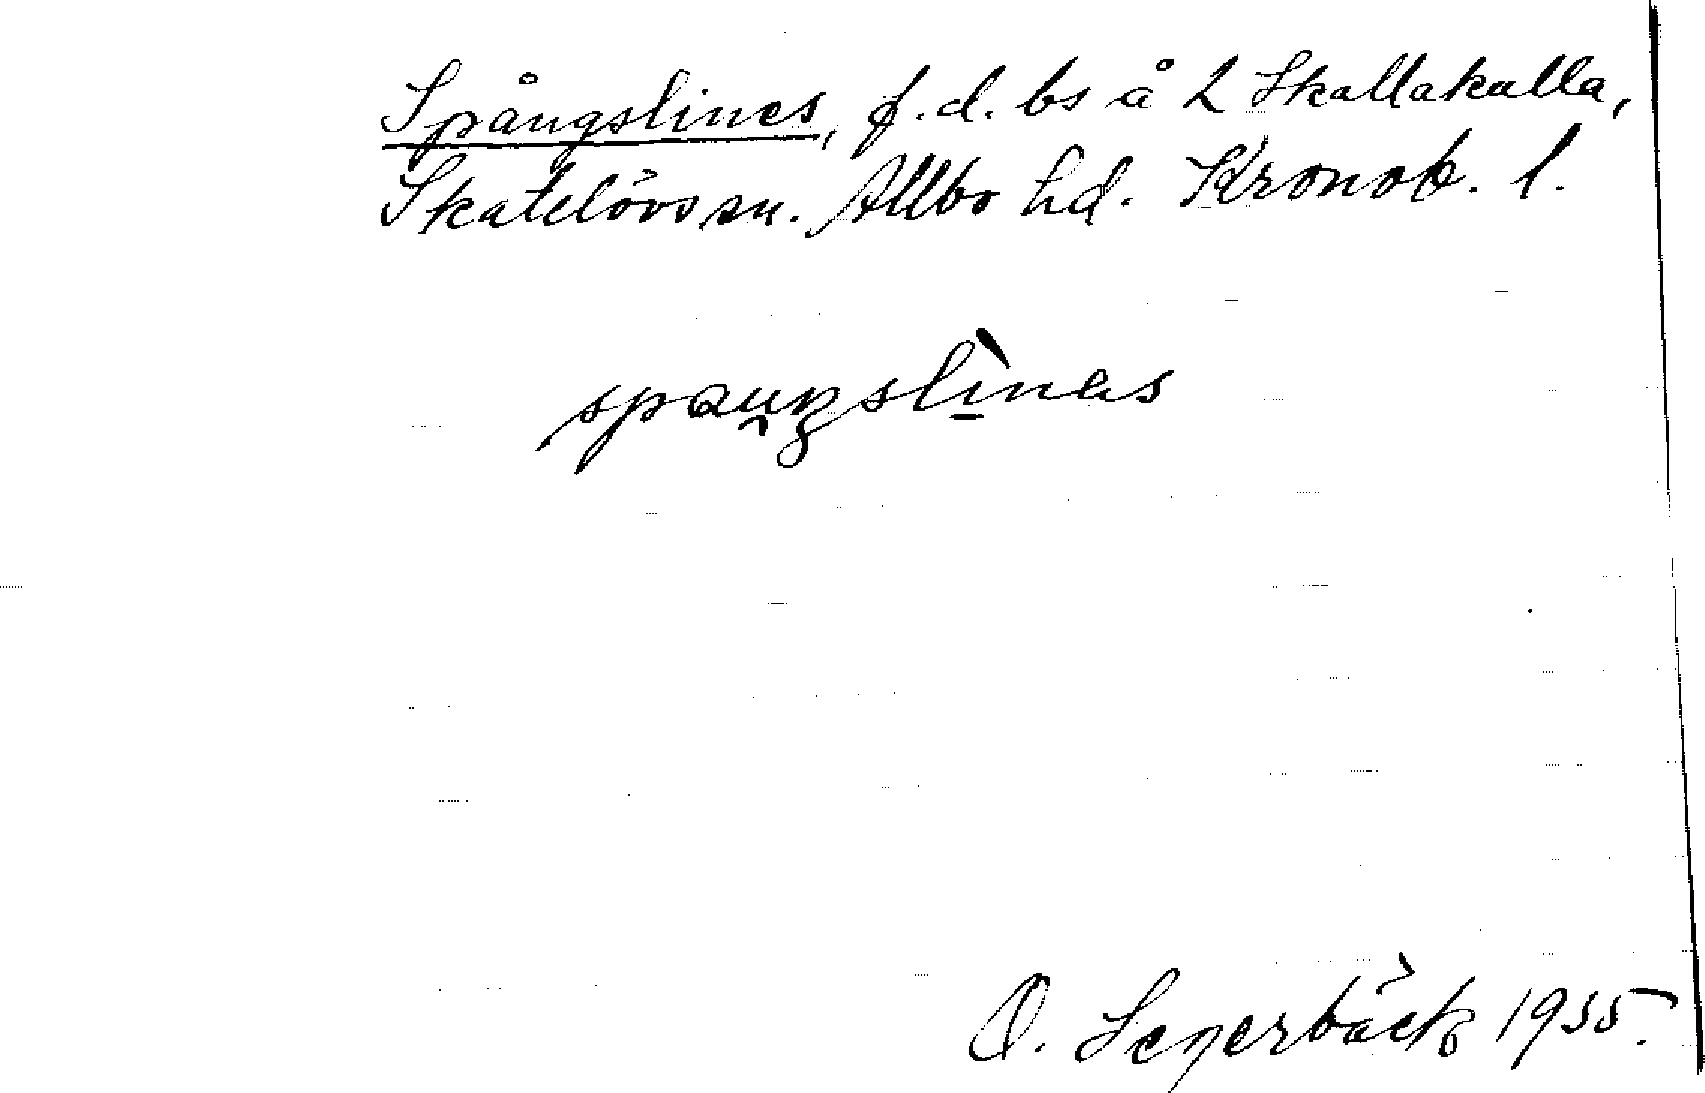 Spångslines, f.d. bs å L Skallakulla,
Skatelövs sn. Allbo hd. Kronob. l.
O. Segerbäck 1955.